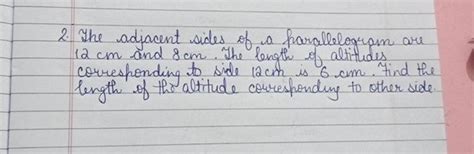 2. The adjacent sides of a parallelogram are
12 cm and 8 cm. The length of altitudes
corresponding to side 12 cm is 6 cm. Find the
length of the altitude corresponding to other side.